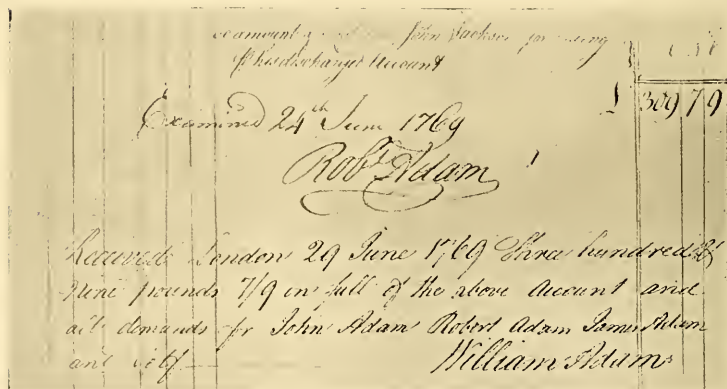 amount John Jackson for
of his discharged Account
309 7 9
Examined 24th June 1769
Robt Adam
Received London 29 June 1769 Three hundred &
Nine pounds 7/9 in full of the above Account and
all demands for John Adam Robert Adam James Adam
and self
William Adam